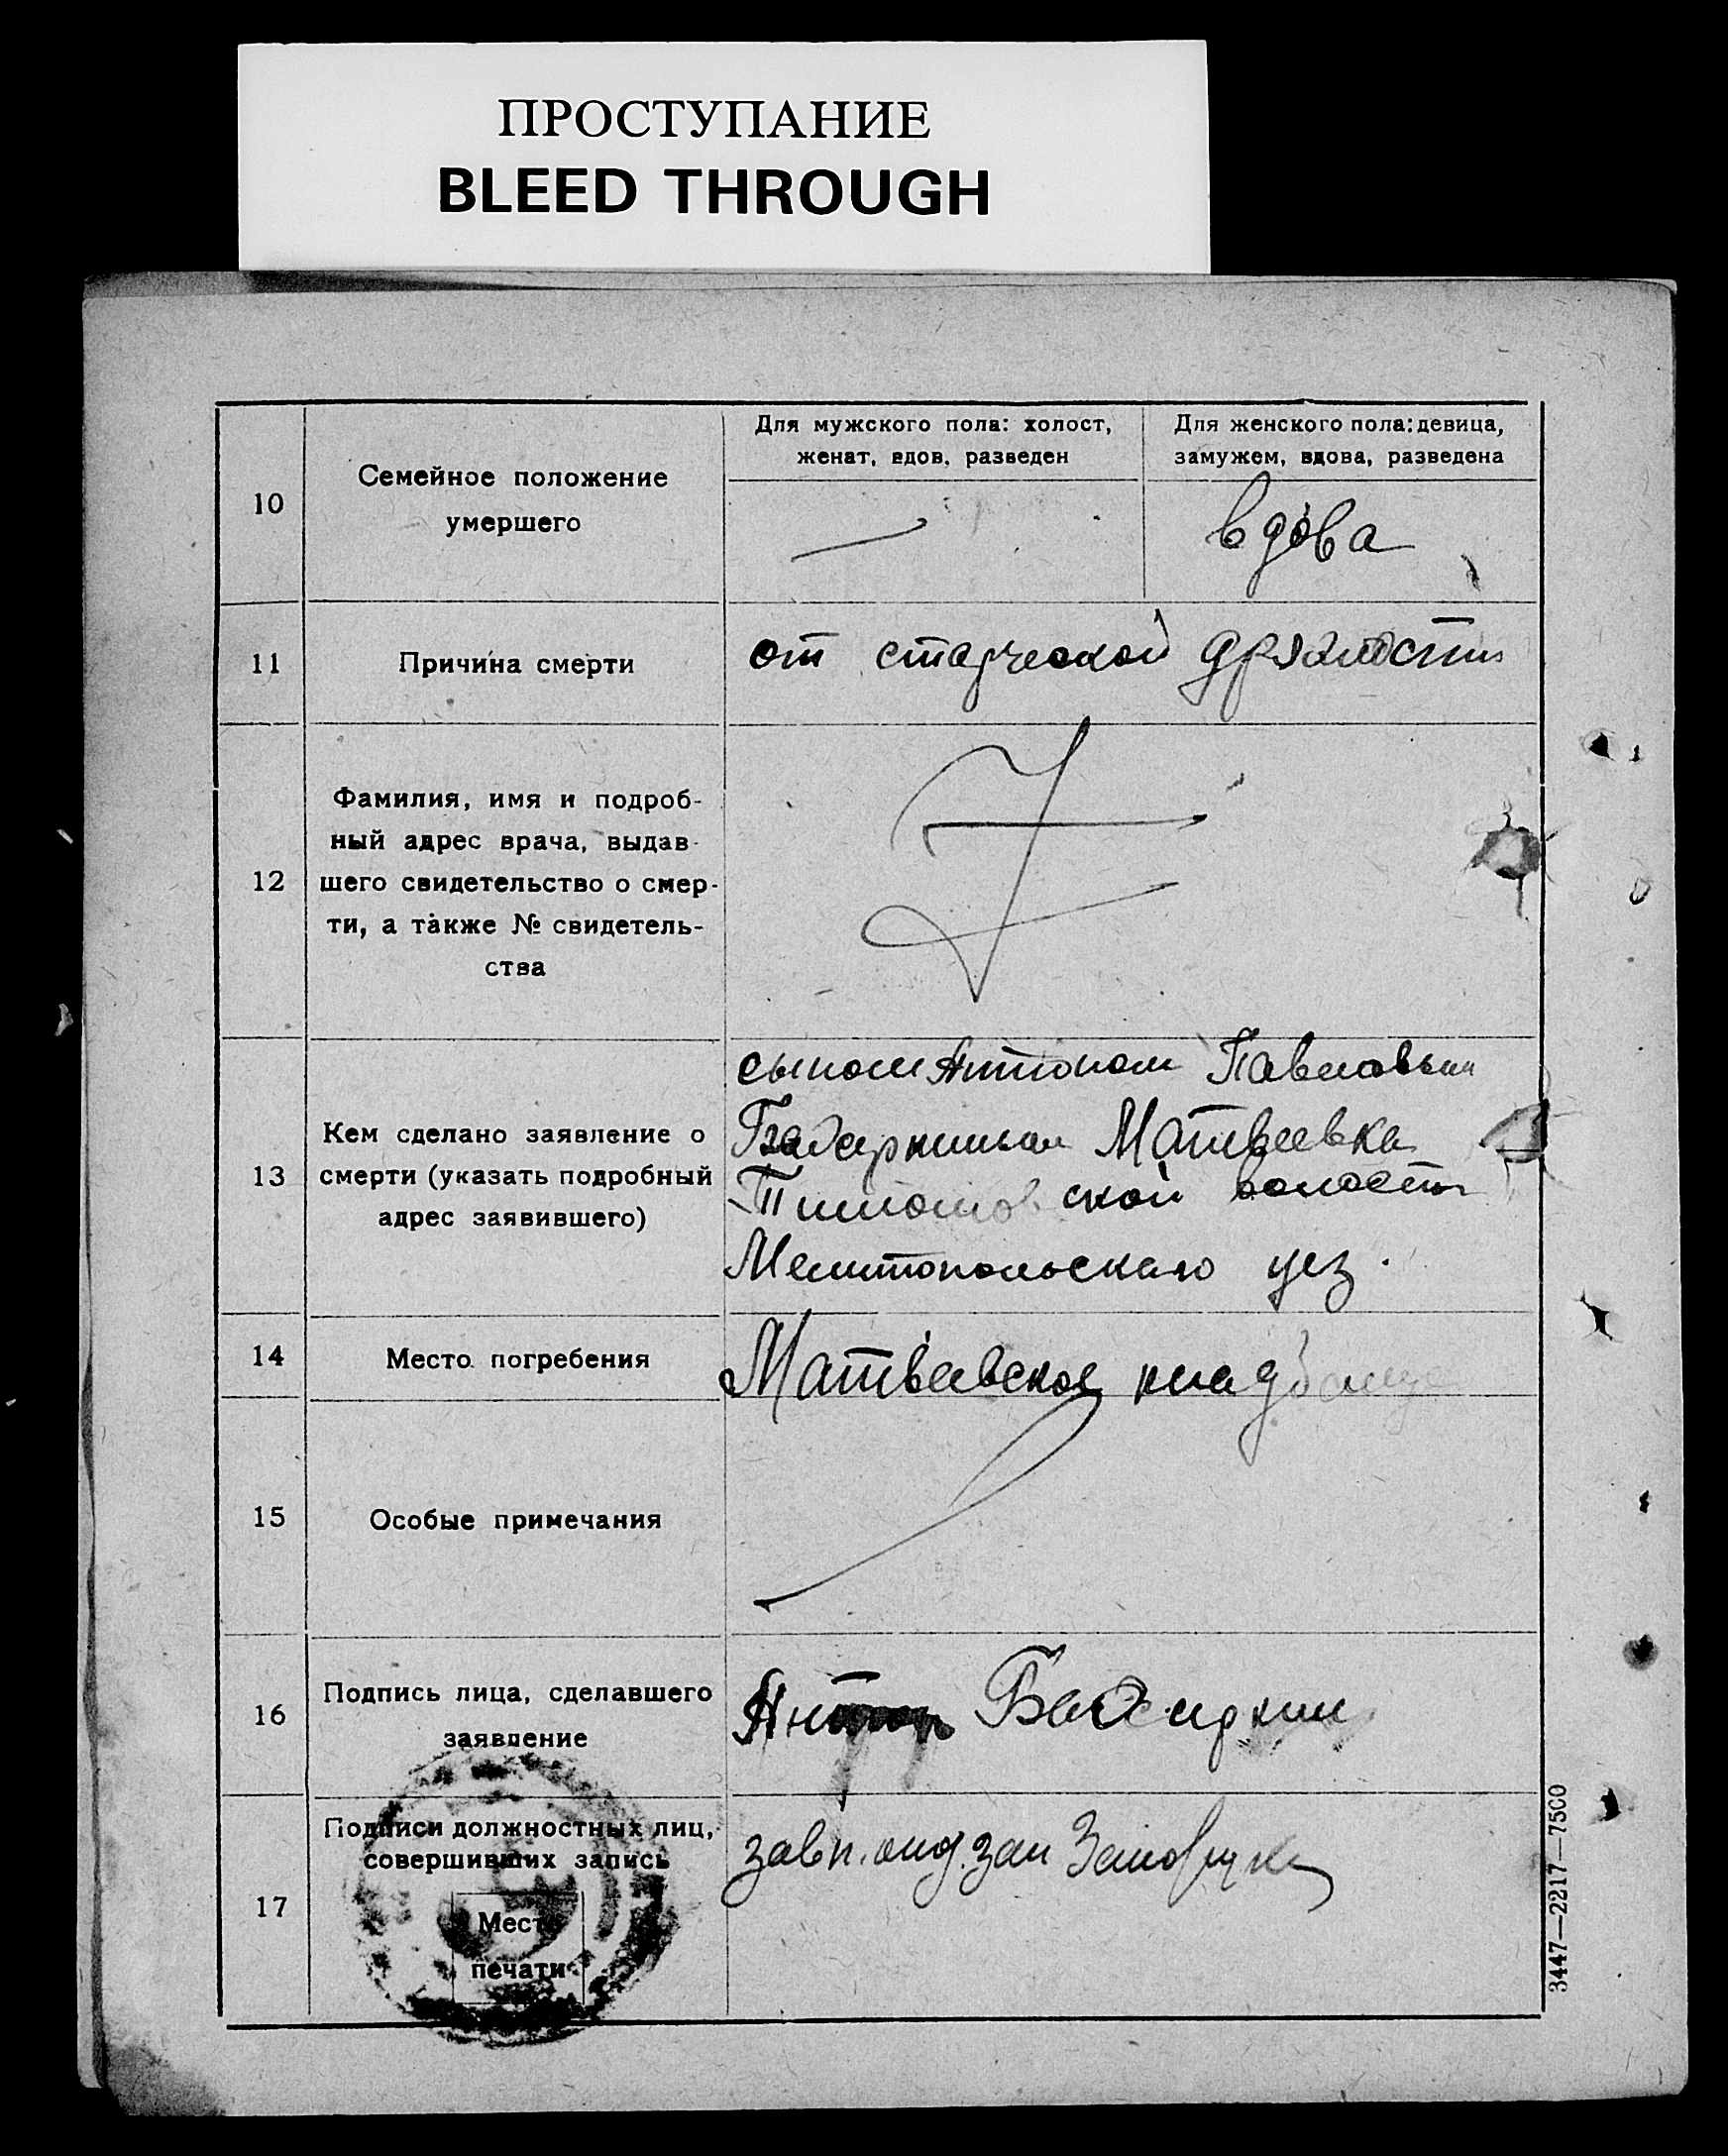 ПРОСТУПАНИЕ
BLEED THROUGH
10
Семейное положение
умершего
Для мужского пола: холост,
женат, вдов, разведен
Для женского пола: девица,
замужем, вдова, разведена
вдова
11
Причина смерти
от старческой дряхлости
12
Фамилия, имя и подроб-
ный адрес врача, выдав-
шего свидетельство о смер-
ти, а также № свидетель-
ства
13
Кем сделано заявление о
смерти (указать подробный
адрес заявившего)
сыном Антоном Павловым
Матвеевка
ской волости
Мелитопольского уез.
14
Место погребения
Матвеевское кладбище
15
Особые примечания
16
Подпись лица, сделавшего
заявление
Антон
17
Подписи должностных лиц,
совершивших запись
Место
печати
3447—2217—7500